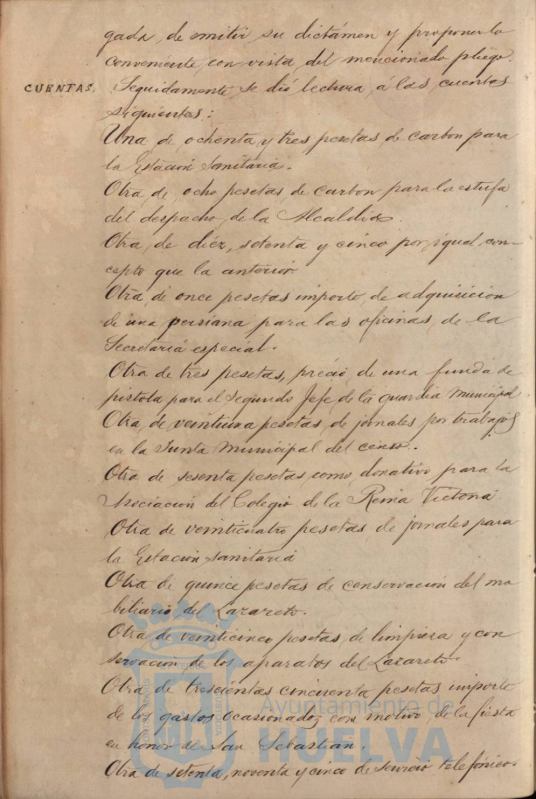 gada, de emitir su dictámen y proponer lo
conveniente, con vista del mencionado pliego.
CUENTAS. Seguidamente, se dió lectura, á las cuentas
siguientes:
Una de ochenta y tres pesetas de carbon para
la Estación Sanitaria.
Otra de, ocho pesetas de carbon para la estufa
del despacho, de la Alcaldia.
Otra, de diéz, setenta y cinco por igual con-
cepto que la anterior
Otra, de once pesetas importe, de adquisicion
de una persiana para las oficinas, de la
Secretaría especial.
Otra de tres pesetas, precio, de una funda de
pistola para el segundo Jefe de la guardia municipal
Otra de veintiuna pesetas, de jornales por trabajos
en la Junta Municipal del censo.
Otra de sesenta pesetas como donativo para la
Asociación del Colegio de la Reina Victoria
Otra de veinticuatro pesetas de jornales para
la Estación sanitaria
Otra de quince pesetas de conservación del mo
biliario del Lazareto.
Otra de veinticinco pesetas, de limpieza y con
servacion de los aparatos del Lazareto.
Otra de trescientas cincuenta pesetas importe
de los gastos ocasionados con motivo, de la fiesta
en honor de San Sebastián.
Otra de setenta, noventa y cinco de servicio telefónico
Ayuntamiento de
HUELVA